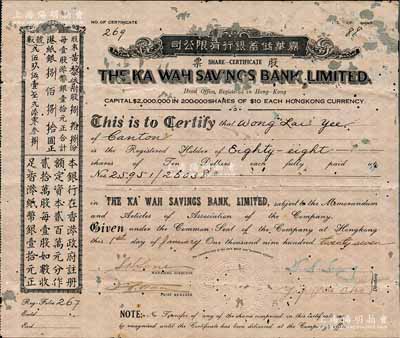 NO. OF CERTIFICATE
269
88
嘉華儲蓄銀行有限公司
股票
SHARE CERTIFICATE
THE KA WAH SAVINGS BANK, LIMITED.
Head Office, Registered in Hong Kong
CAPITAL $2,000,000 IN 200,000 SHARES OF $10 EACH HONGKONG CURRENCY
This is to Certify that Wong Lai Yee
of Canton
is the Registered Holder of Eighty-eight
shares of Ten Dollars each fully paid
No. 25951/26038
in THE KA WAH SAVINGS BANK, LIMITED, subject to the Memorandum
and Articles of Association of the Company.
Given under the Common Seal of the Company at Hongkong
this 1st day of January One thousand nine hundred twenty seven
MANAGING DIRECTOR
NOTE: No Transfer of any of the shares comprised in this Certificate
be recognised until the Certificate has been delivered at the Company's
每股港幣銀壹十元正合計
港紙銀捌佰捌拾圓正
本銀行在香港政府註冊
額定資本貳百萬元分作
貳拾萬股每股如數收
足香港紙幣銀壹十元正
Reg. Folio 267